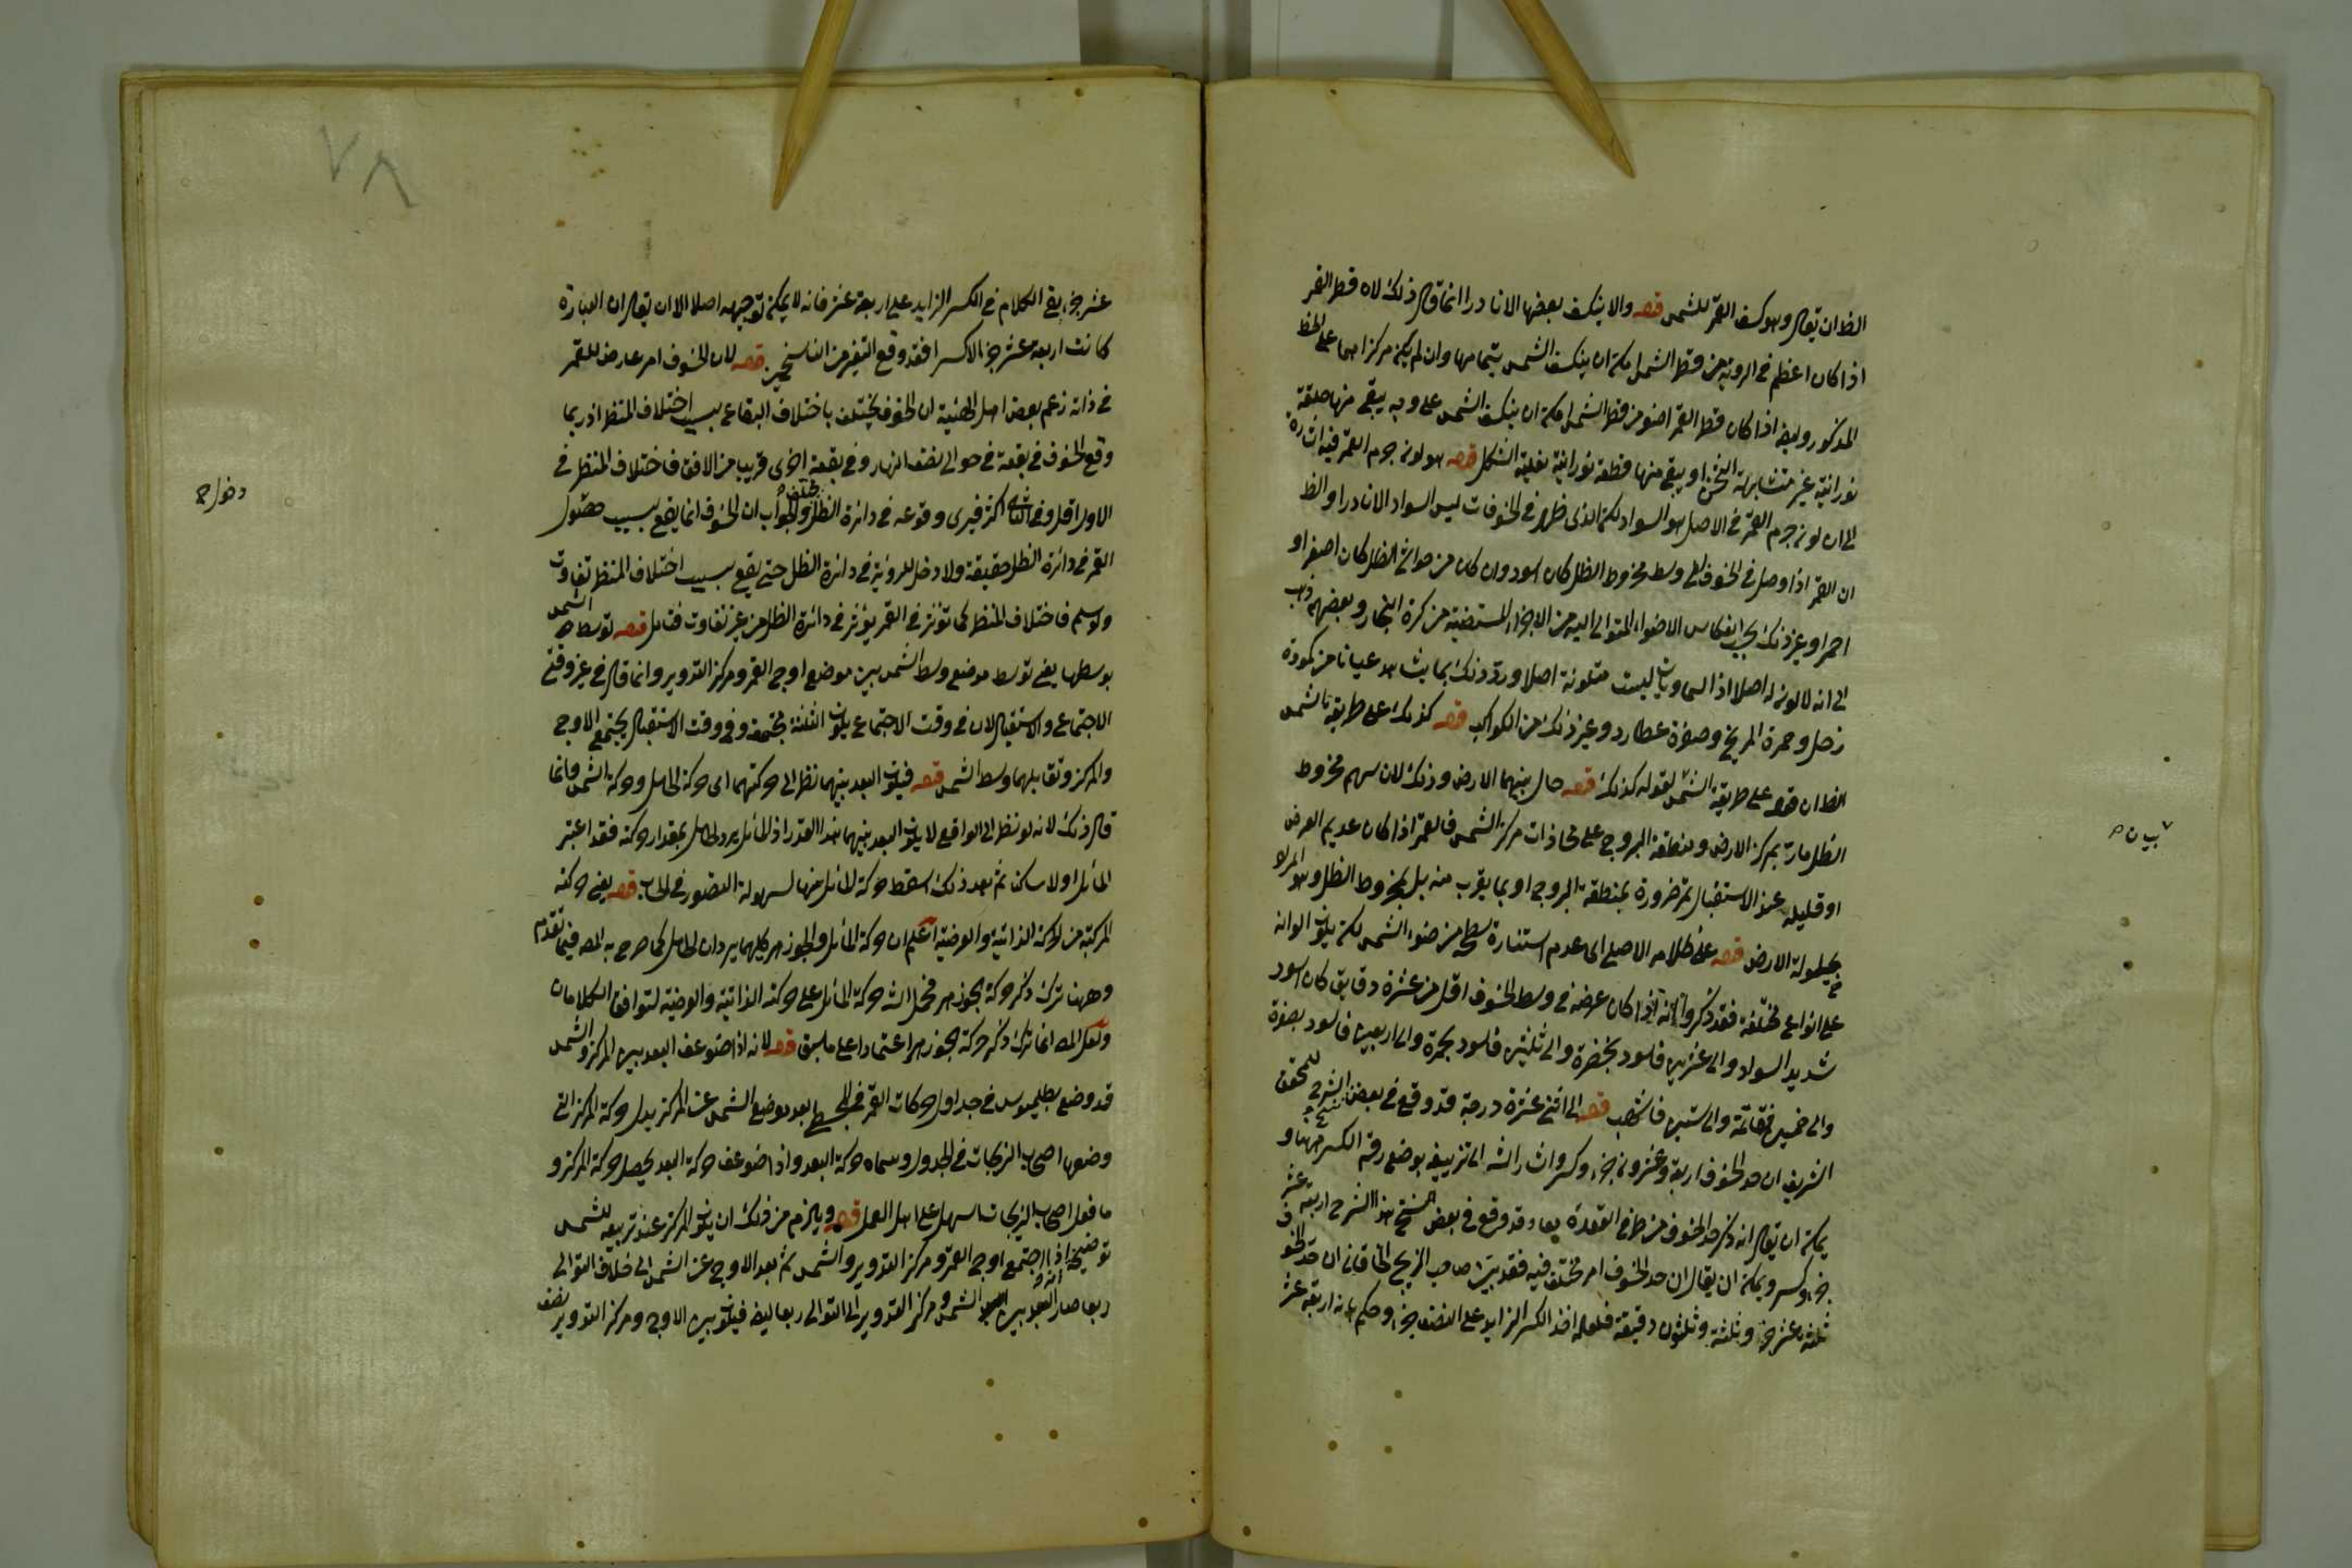 الظ ان يقال وهو كسف القمر للشمس قوله والا ينكسف بعضها الا نادرا انما قال ذلك لان قطر القمر
اذا كان اعظم في الروية من قطر الشمس امكن ان ينكسف الشمس بتمامها وان لم يكن مركزاهما على الخط
المذكور وايضا اذا كان قطر القمر اصغر من قطر الشمس امكن ان ينكسف الشمس على وجه يبقى منها حلقة
نورانية غير متشابهة الثخن او يبقى منها قطعة نورانية نعلية الشكل قوله هو لون جرم القمر فيه اشارة
الى ان لون جرم القمر في الاصل هو السواد لكن الذي ظهر في الخسوفات ليس السواد الا نادرا والظ
ان القمر اذا وصل في الخسوف الى وسط مخروط الظل كان اسود وان كان من حواشي الظل كان اصفر او
احمر او غير ذلك بحسب انعكاس الاضواء المتوالي اليه من الاجزاء المستضيئة من كرة البخار وبعضهم ذهب
الى انه لا لون له اصلا اذ السماويات ليست متلونة اصلا ورد ذلك بما يشاهد عيانا من كمودة
زحل وحمرة المريخ وصفرة عطارد وغير ذلك من الكواكب قوله كذلك على طريقة الشمس
الظ ان قوله على طريقة الشمس لقوله كذلك قوله حال بينهما الارض وذلك لان سهم مخروط
الظل مارة بمركز الارض ومنطقة البروج على محاذات مركز الشمس فالقمر اذا كان عديم العرض
او قليله عند الاستقبال تمر ضرورة بمنطقة البروج او بما يقرب منه بل بمخروط الظل وهو المراد
بحيلولة الارض قوله على ظلامه الاصلي اى عدم استنارة سطحه من ضوء الشمس لكن يكون الوانه
على انواع مختلفة فقد ذكروا انه اذا كان عرضه في وسط الخسوف اقل من عشرة دقايق كان اسود
شديد السواد والى عشرين فاسود بخضرة والى ثلثين فاسود بحمرة والى اربعين فاسود بصفرة
والى خمسين فقاتمة والى ستين فاشهب قوله الى اثني عشرة درجة قد وقع في بعض نسخ الشرح للمحقق
الشريف ان حد الخسوف اربعة وعشرون جزء وكسر واشار الشه الى تزييفه بوضع رقم الكسر مهنا و
يمكن ان يقال انه ذكر حد الخسوف من طرفي العقدة معا وقد وقع في بعض النسخ هذا الشرح اربعة عشر
جزء وكسر ويمكن ان يقال ان حد الخسوف امر مختلف فيه فقد بين صاحب الزيج الخاقاني ان حد الخسوف
ثلثة عشر جزء وثلثة وثلثون دقيقة فلعله اخذ الكسر الزايد على النصف جزء وحكم بانه اربعة عشر
بيان
٧٨
عشر جزء بقي الكلام في الكسر الزايد على اربعة عشر فانه لا يمكن توجيهه اصلا الا ان يقال ان العبارة
كانت اربعة عشر جزء الا كسرا فقد وقع التغير من الناسخين قوله لان الخسوف امر عارض للقمر
في ذاته زعم بعض اهل الهيئة ان الخسوف يختلف باختلاف البقاع بسبب اختلاف المنظر اذ ربما
وقع الخسوف في بقعة في حوالى نصف النهار وفي بقعة اخرى قريب من الافق فاختلاف المنظر في
الاول اقل وفي الثاني اكثر فيرى وقوعه في دائرة الظل مختلف والجواب ان الخسوف انما يقع بسبب حصول
دخول
القمر في دائرة الظل حقيقة ولا دخل للروية في دائرة الظل حتى يقع بسبب اختلاف المنظر تفاوت
ولو سلم فاختلاف المنظر كما تؤثر في القمر يؤثر في دائرة الظل من غير تفاوت فتامل قوله توسط الشمس
بوسطها يعني توسط موضع وسط الشمس بين موضع اوج القمر ومركز التدوير وانما قال في غير وقتي
الاجتماع والاستقبال لان في وقت الاجتماع يكون الثلثة مجتمعة وفي وقت الاستقبال يجتمع الاوج
والمركز وتقابلهما وسط الشمس قوله فيكون البعد بينهما نظرا الى حركتهما اى حركة الحامل وحركة الشمس وانما
قال ذلك لانه لو نظر الى الواقع لا يكون البعد بينهما هذا القدر اذ المائل يرد الحامل بمقدار حركته فقد اعتبر
المائل اولا ساكن ثم بعد ذلك اسقط حركة المائل منها لسهولة التصور في الحساب قوله يعني حركته
المركبة من الحركة الذاتية والعرضية اعلم ان حركة المائل والجوزهر كليهما يردان الحامل كما صرح به المصه فيما تقدم
وههنا ترك ذكر حركة الجوزهر فحمل الشه حركة المائل على حركته الذاتية والعرضية لتوافق الكلامان
ولعل المصه انما ترك ذكر حركة الجوزهر اعتمادا على ما سبق قوله لانه اذا ضوعف البعد بين المركز والشمس
قد وضع بطليموس في جداول حركات القمر في المجسطي بعد موضع الشمس عن المركز بدل حركة المركز التي
وضعها اصحاب الزيجات في الجدول وسماه حركة البعد واذا ضوعف حركة البعد يحصل حركة المركز و
ما فعل اصحاب الزيجات اسهل على اهل العمل قوله ويلزم من ذلك ان يكون المركز عند تربيعه للشمس
توضيحه اذا اجتمع اوج القمر ومركز التدوير والشمس ثم بعد الاوج عن الشمس الى خلاف التوالى
ربعا صار البعد بين الشمس ومركز التدوير الى التوالى ربعا ايضا فيكون بين الاوج ومركز التدوير نصف